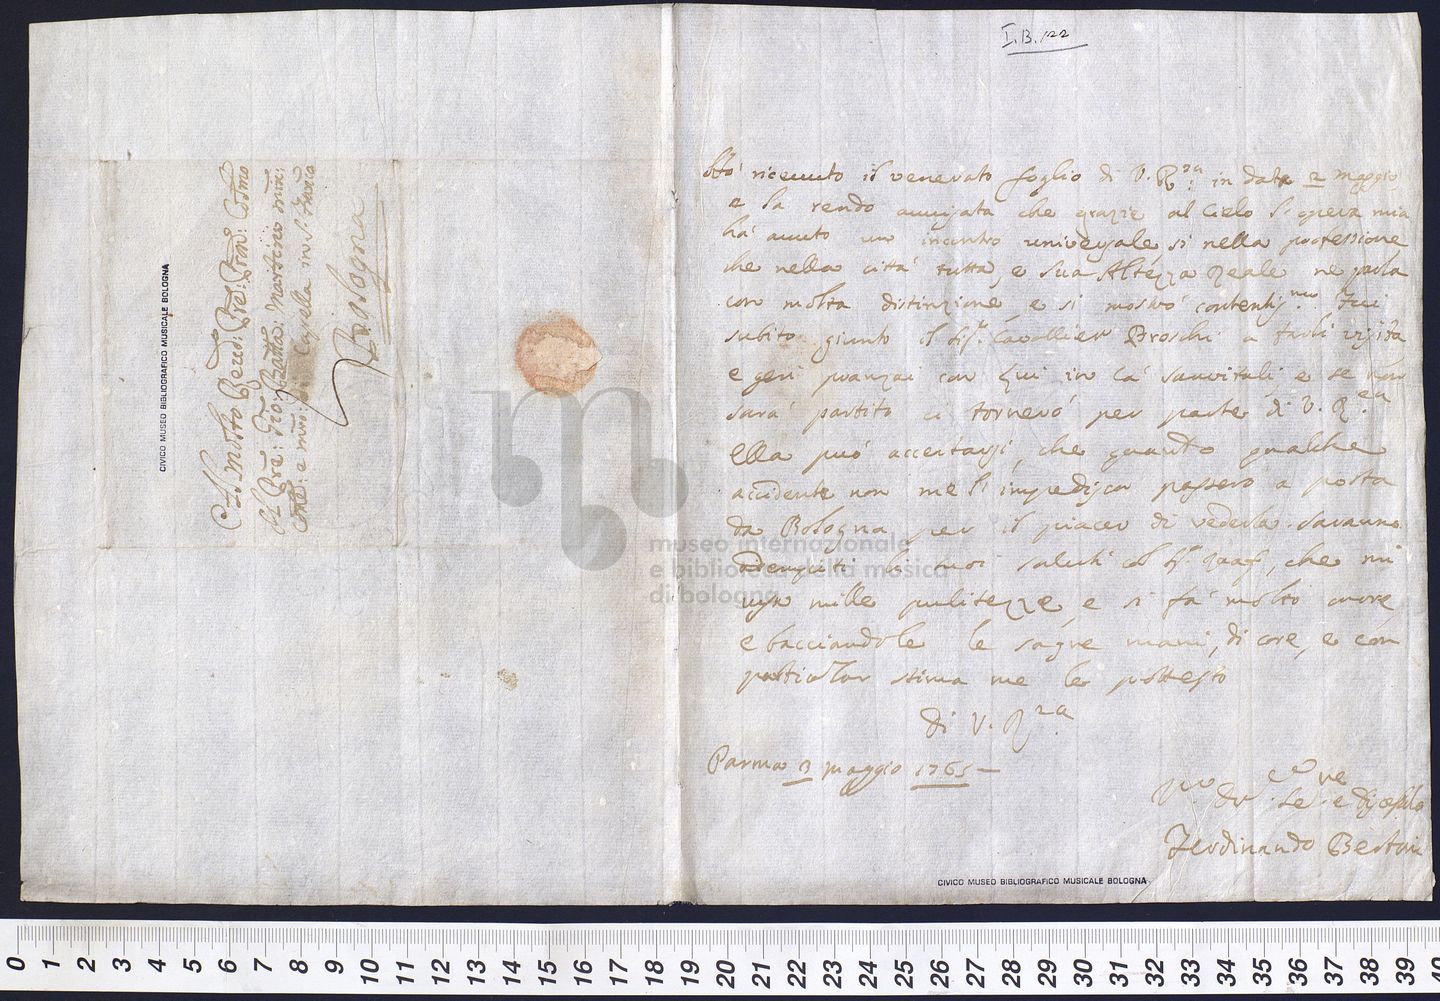 I.B.122
Al molto Rev:do Pre: Pron: Colmo
Il Pre: Gio: Batta: Martino min:
Conle: e mro: di Capella in S: Franco
Bologna
CIVICO MUSEO BIBLIOGRAFICO MUSICALE BOLOGNA
Hò riceuuto il venerato foglio di V. R.za in data 2 maggio
e la rendo auuisata che grazie al Cielo l'opera mia
hà auuto un incontro universale sì nella professione
che nella città tutta, e sua Altezza Reale ne parla
con molta distinzione, e si mostrò contentissmo. Fui
subito giunto il Sigr. Cavallier Broschi a farli visita
e geri pranzai con Lui in ca' Sanvitali, e se non
sarà partito ci tornerò per parte di V. R.za
Ella può accertarsi, che quando qualche
accidente non me l'impedisca passerò a posta
da Bologna per il piacer di vederla. Saranno
adempiti li suoi saluti col Sigr. Raaf, che mi
usa mille pulitezze, e si fà molto onore,
e bacciandole le sagre mani, di core, e con
particolar stima me le protesto
di V. R.za
Parma 3 maggio 1765
Ferdinando Bertoni
CIVICO MUSEO BIBLIOGRAFICO MUSICALE BOLOGNA
museo internazionale
e biblioteca della musica
di bologna
0 1 2 3 4 5 6 7 8 9 10 11 12 13 14 15 16 17 18 19 20 21 22 23 24 25 26 27 28 29 30 31 32 33 34 35 36 37 38 39 40